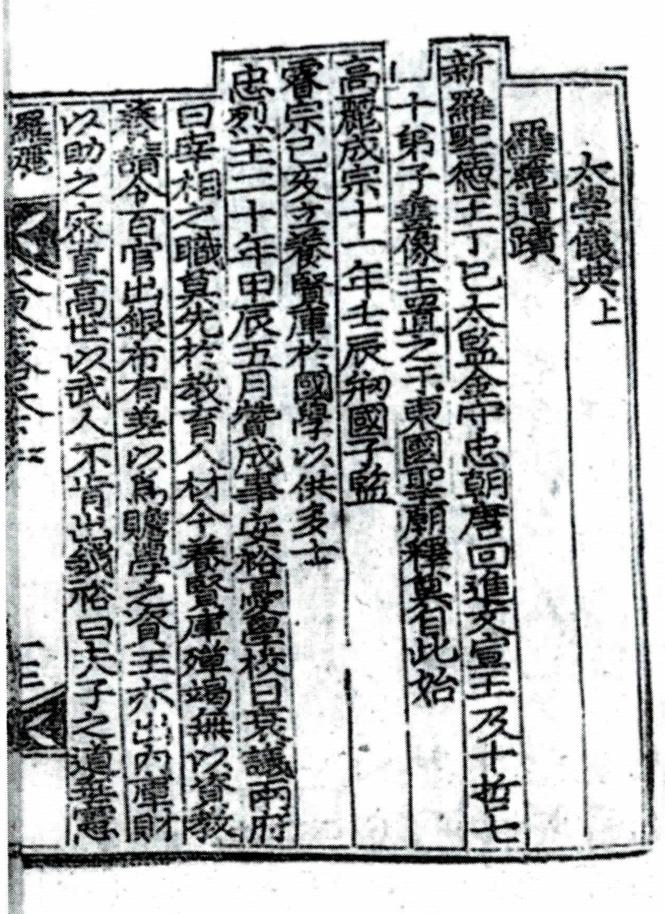 太學儀典上
羅麗遺蹟
新羅聖德王丁巳太監金守忠朝唐回進文宣王及十哲七
十弟子畫像王置之于東國聖廟釋奠自此始
高麗成宗十一年壬辰刱國子監
睿宗己亥立養賢庫於國學以供多士
忠烈王三十年甲辰五月贊成事安裕憂學校日衰議兩府
曰宰相之職莫先於教育人材今養賢庫殫竭無以資教
養請令百官出銀布有差以爲贍學之資王亦出內庫財
以助之密直高世以武人不肯出錢裕曰夫子之道垂憲
羅麗